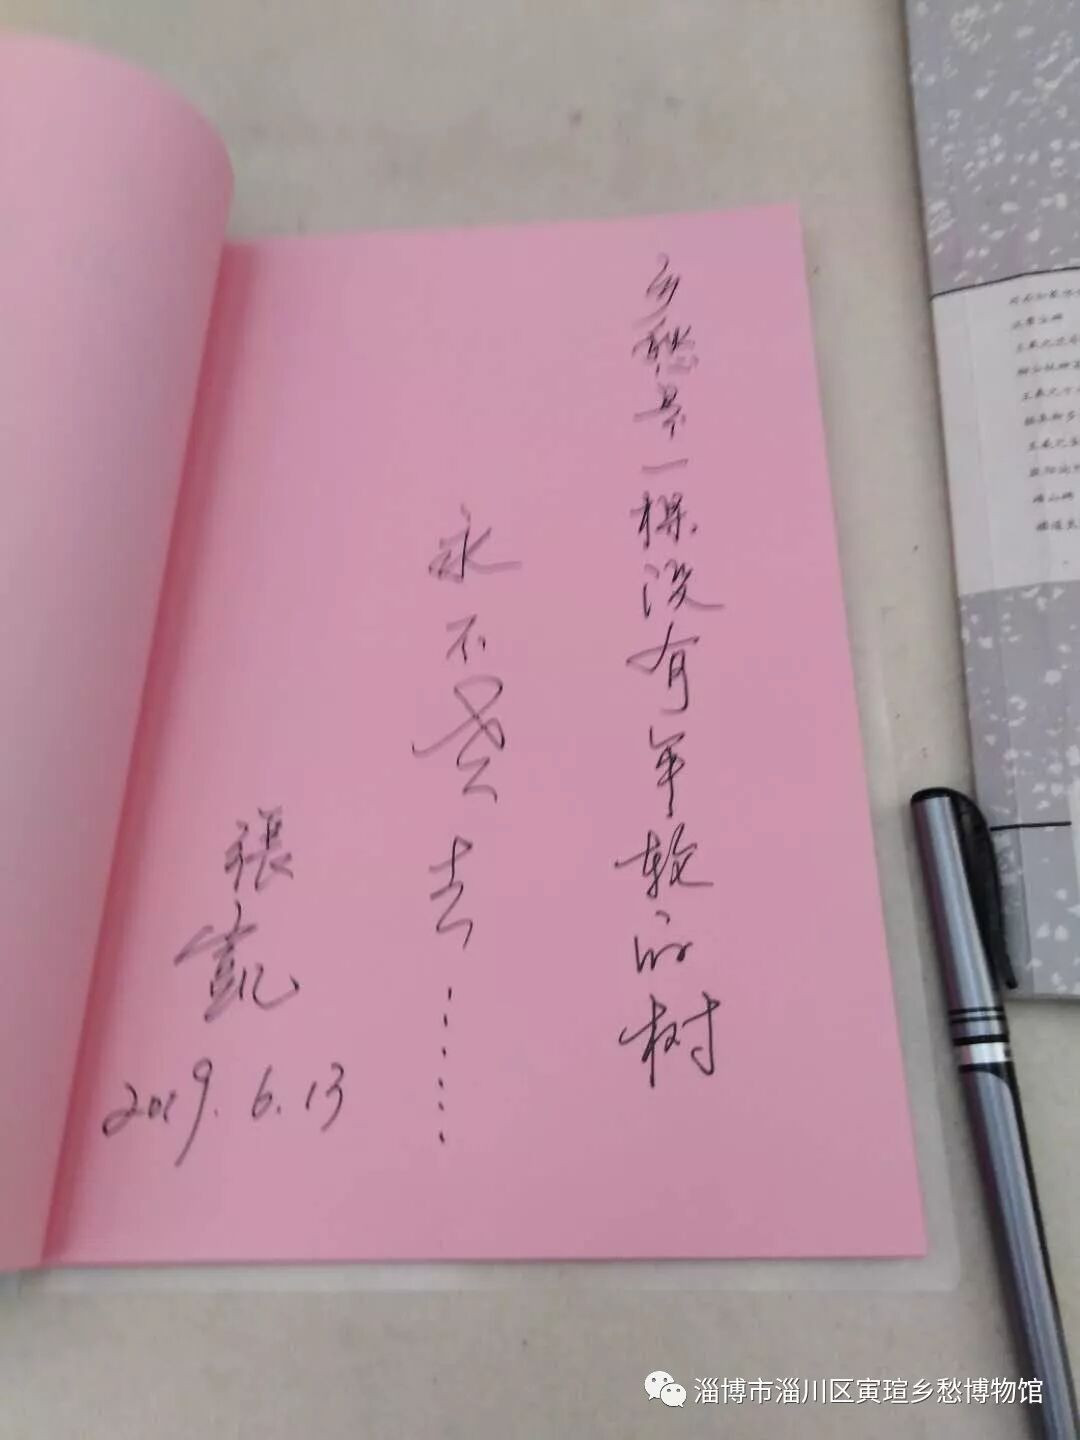 乡愁是一棵没有年轮的树
永不老去……
張凱
2019.6.13
淄博市淄川区寅瑄乡愁博物馆